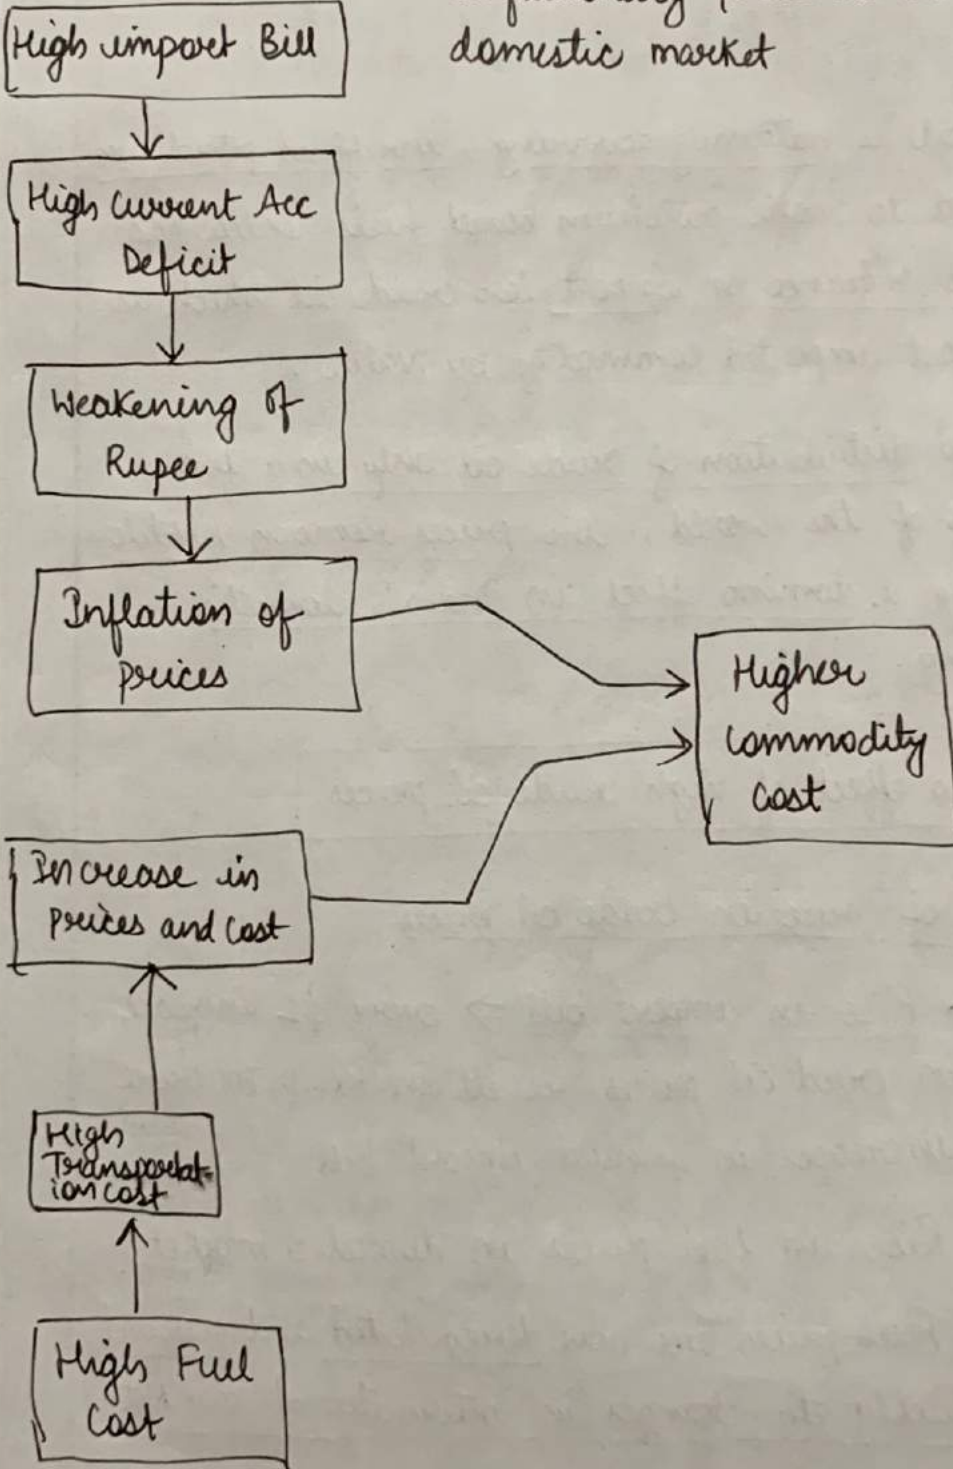 domestic market
High import Bill
High Current Acc
Deficit
Weakening of
Rupee
Inflation of
prices
Higher
Commodity
Cost
Increase in
prices and cost
High
Transportat-
ion cost
High Fuel
Cost